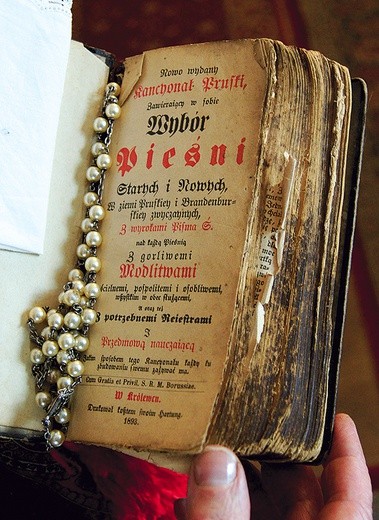 Nowo wydany
Kancyonał Pruski,
Zawieraiący w sobie
Wybór
Pieśni
Starych i Nowych,
W ziemi Pruskiey i Brandenbur-
skiey zwyczaynych,
Z wyrokami Pisma S.
nad każdą Pieśnią
Z gorliwemi
Modlitwami
pospolitemi i osobliwemi,
wszystkim w obec służącemi,
A oraz też
z potrzebnemi Reiestrami
I
Przedmową nauczaiącą
sposobem tego Kancyonału każdy ku
zbudowaniu swemu zażywać ma.
Cum Gratia et Privil. S. R. M. Borussiae.
W Królewcu.
Drukował kosztem swoim Hartung.
1893.